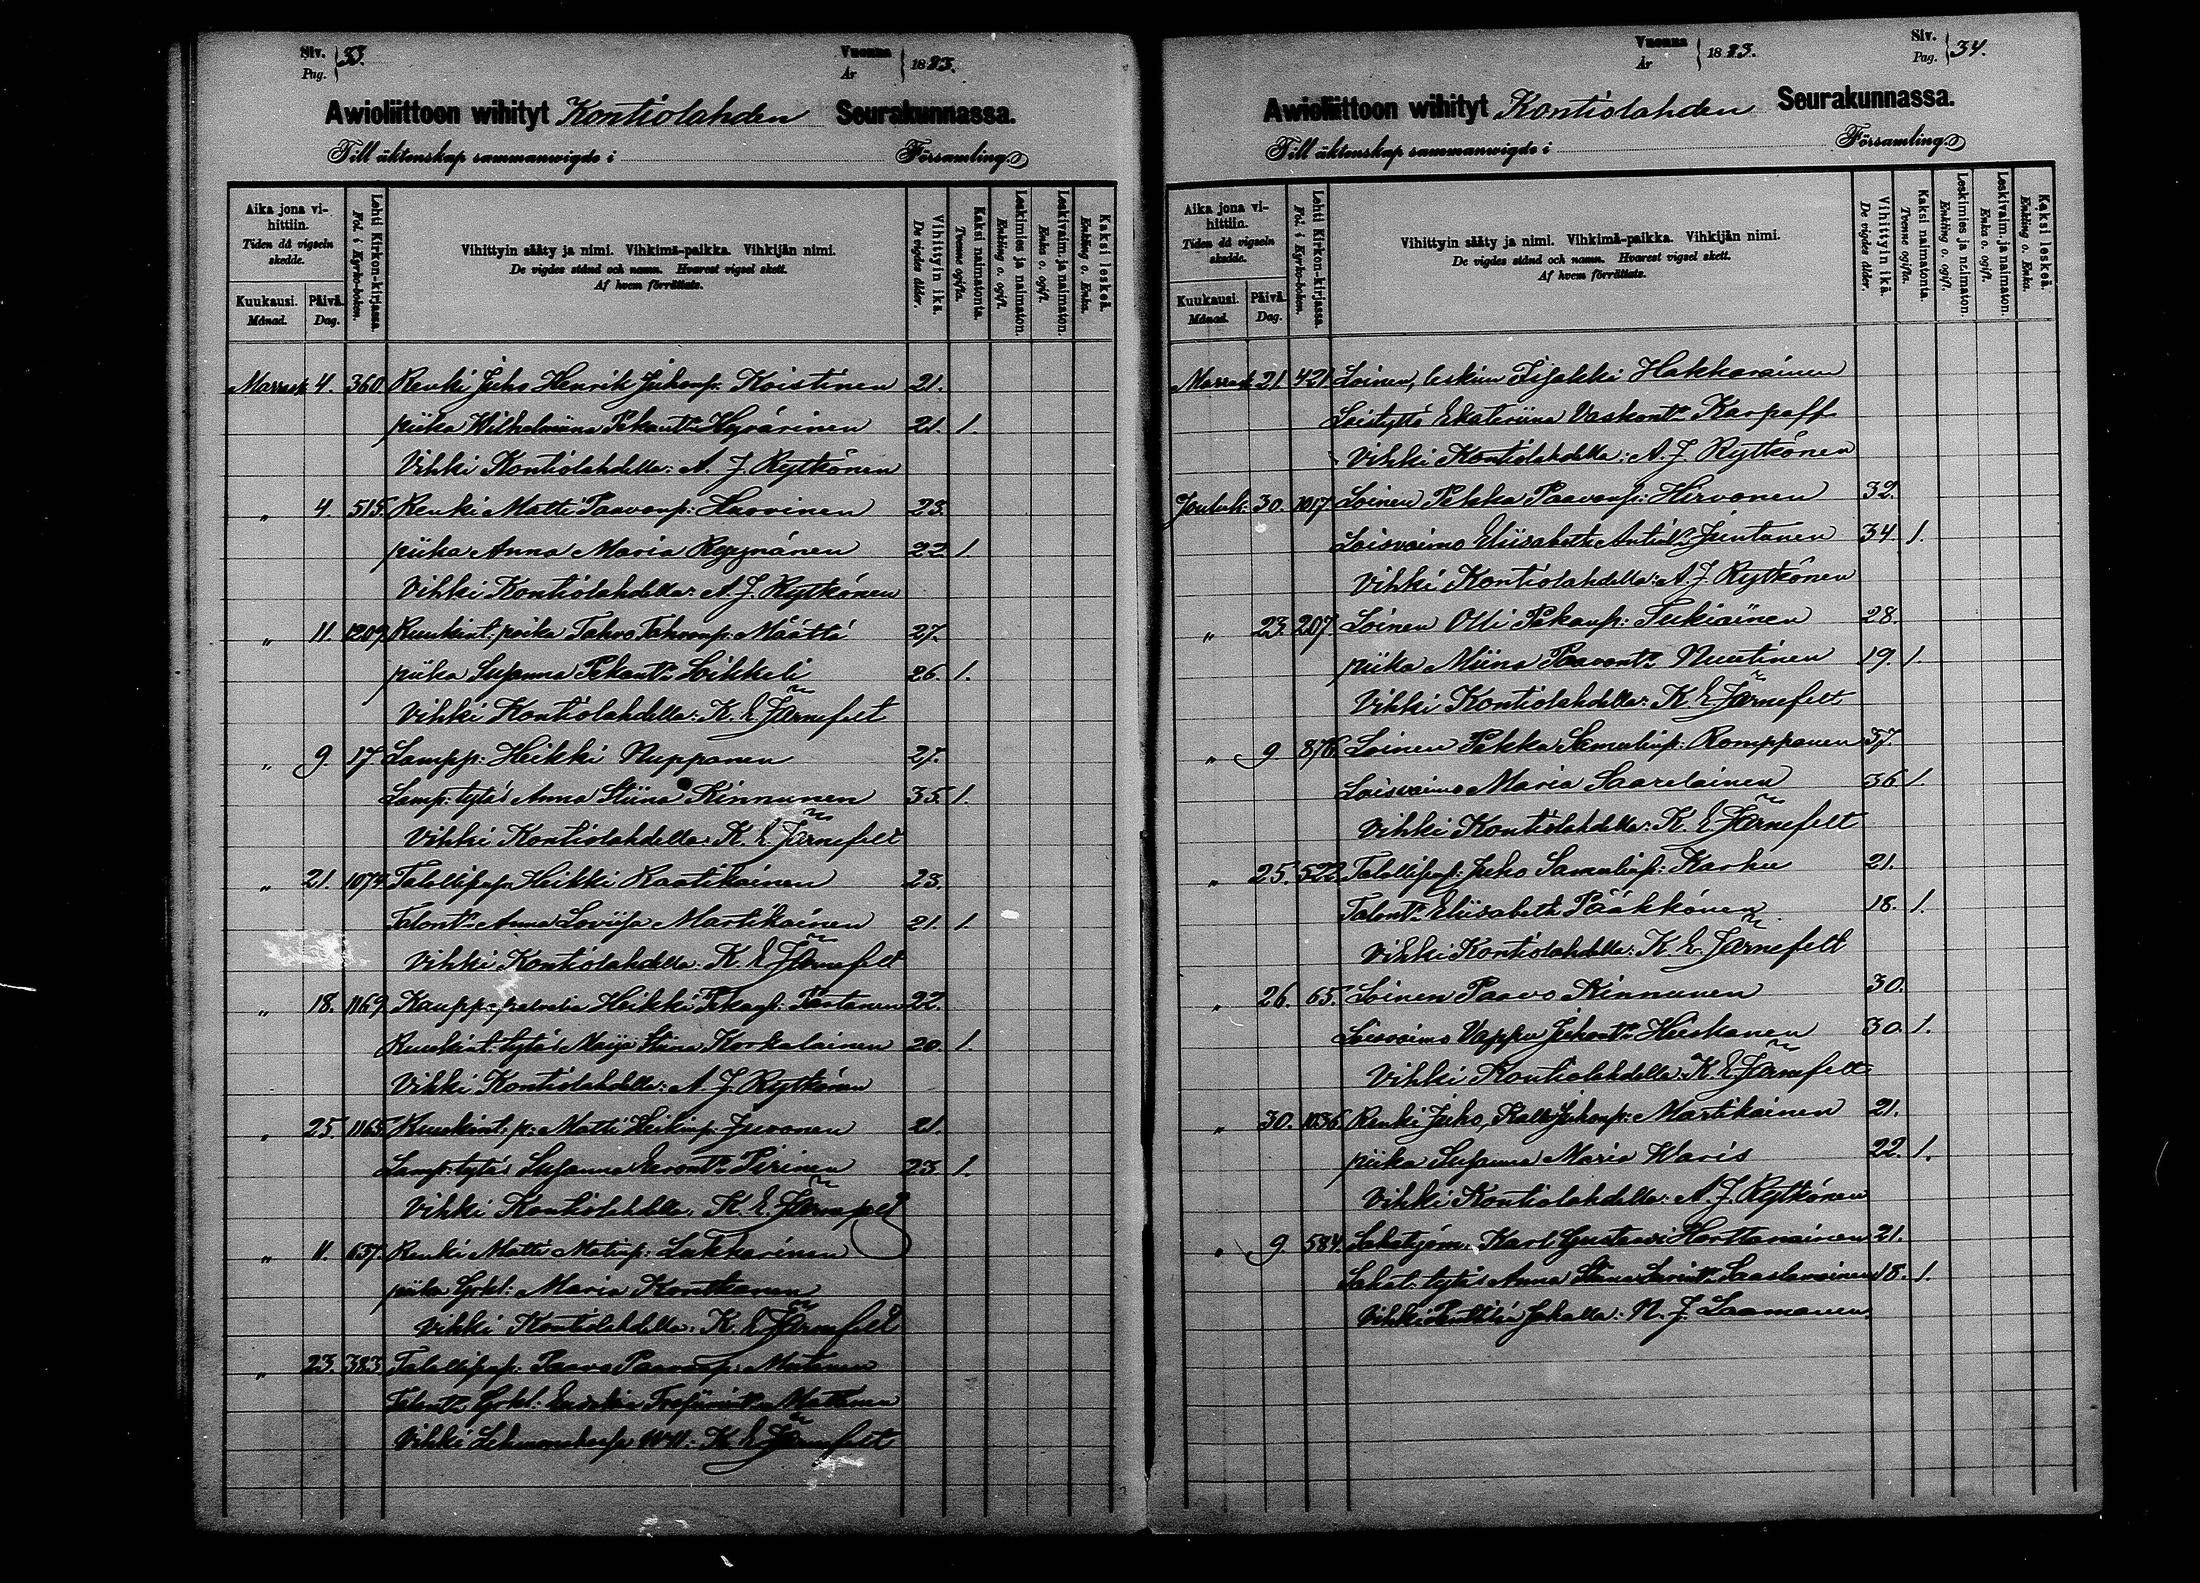 Siv. Pag. 33.
Vuonna År 1883.
Awioliittoon wihityt Kontiolahden Seurakunnassa.
Till äktenskap sammanwigde i Församling.
Aika jona vihittiin. Tiden då vigseln skedde.
Kuukausi. Månad. Päivä. Dag.
Lehti Kirkon-kirjassa. Fol. i Kyrko-boken.
Vihittyin sääty ja nimi. Vihkimä-paikka. Vihkijän nimi.
De vigdes stånd och namn. Hvarest vigsel skett.
Af hvem förrättats.
Vihittyin ikä. De vigdes ålder.
Kaksi naimatonta. Tvenne ogifta.
Leskimies ja naimaton. Enkling o. ogift.
Leskivaim. ja naimaton. Enka o. ogift.
Kaksi leskeä. Enkling o. Enka.
Marrask. 4. 360. Renki Juho Henrik Juhonp: Koistinen 21.
piika Wilhelmiina Pekant:r Hyvärinen 21. 1.
Vihki Kontiolahdella: A. J. Rytkönen
" 4. 515. Renki Matti Paavonp: Huovinen 23.
piika Anna Maria Ryynänen 22. 1.
Vihki Kontiolahdella: A. J. Rytkönen
" 11. 1209. Ruukint. poika Tahvo Tahvonp: Määttä 27.
piika Susanna Pekant:r Leikkeli 26. 1.
Vihki Kontiolahdella: K. E. Järnefelt
" 9. 17. Lampp: Heikki Nupponen 25.
Lamp: tytär Anna Stiina Kinnunen 35. 1.
Vihki Kontiolahdella: K. E. Järnefelt
" 21. 1074. Talollisp. Heikki Raatikainen 23.
Talont:r Anna Loviisa Martikainen 21. 1.
Vihki Kontiolahdella: K. E. Järnefelt
" 18. 1169. Kaupp: palvelia Heikki Pekanp: Partanen 22.
Ruukint. tytär Maija Stiina Korkalainen 20. 1.
Vihki Kontiolahdella: A. J. Rytkönen
" 25. 1165. Ruukint. p: Matti Heikinp: Juvonen 21.
Lamp: tytär Susanna Eeront:r Piirinen 23. 1.
Vihki Kontiolahdella: K. E. Järnefelt
" 11. 637. Renki Matti Matinp: Lukkarinen
piika Grkl: Maria Kontkanen
Vihki Kontiolahdella: K. E. Järnefelt
" 23. 383. Talollisp. Paavo Paavonp: Mutanen
Talont:r Grkl: Mattinen
Vihki K. E. Järnefelt
Vuonna År 1883.
Siv. Pag. 34.
Awioliittoon wihityt Kontiolahden Seurakunnassa.
Till äktenskap sammanwigde i Församling.
Aika jona vihittiin. Tiden då vigseln skedde.
Kuukausi. Månad. Päivä. Dag.
Lehti Kirkon-kirjassa. Fol. i Kyrko-boken.
Vihittyin sääty ja nimi. Vihkimä-paikka. Vihkijän nimi.
De vigdes stånd och namn. Hvarest vigsel skett.
Af hvem förrättats.
Vihittyin ikä. De vigdes ålder.
Kaksi naimatonta. Tvenne ogifta.
Leskimies ja naimaton. Enkling o. ogift.
Leskivaim. ja naimaton. Enka o. ogift.
Kaksi leskeä. Enkling o. Enka.
Marrask. 21. 421. Loinen, leskim Iisakki Hakkarainen
Loistyttö Ekateriina Vaskont:r Karpoff
Vihki Kontiolahdella: A. J. Rytkönen
Jouluk: 30. 1017. Loinen Pekka Paavonp: Hirvonen 32.
Loisvaimo Eliisabeth Antint:r Juntunen 34. 1.
Vihki Kontiolahdella: A. J. Rytkönen
" 23. 207. Loinen Olli Pekanp: Tukiainen 28.
piika Miina Paavont:r Nuutinen 19. 1.
Vihki Kontiolahdella: K. E. Järnefelt
" 9 876. Loinen Pekka Samulinp: Romppanen 37.
Loisvaimo Maria Saarelainen 36 1.
Vihki Kontiolahdella: K. E. Järnefelt
" 25. 522. Talollisp: Juho Samulinp: Karhu 21.
Talont:r Eliisabeth Pääkkönen 18. 1.
Vihki Kontiolahdella: K. E. Järnefelt
" 26. 65. Loinen Paavo Kinnunen 30.
Loisvaimo Vappu Juhont:r Hiiskanen 30. 1.
Vihki Kontiolahdella: K. E. Järnefelt
" 30. 1036. Renki Juho, Kalle Juhonp: Martikainen 21.
piika Susanna Maria Waris 22. 1.
Vihki Kontiolahdella: A. J. Rytkönen
" 9 584. Sahatyöm: Karl Gustaavi Harttanainen 21.
Sahat. tytär Anna Stiina Saastamoinen 18. 1.
Vihki Penttilän Sahalla: N. J. Laamanen.